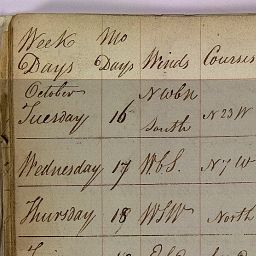 Week Mo
Days Days Winds Courses
October NWbN
Tuesday 16 South N 23 W
Wednesday 17 WbS. N 7 W
Thursday 18 WSW North